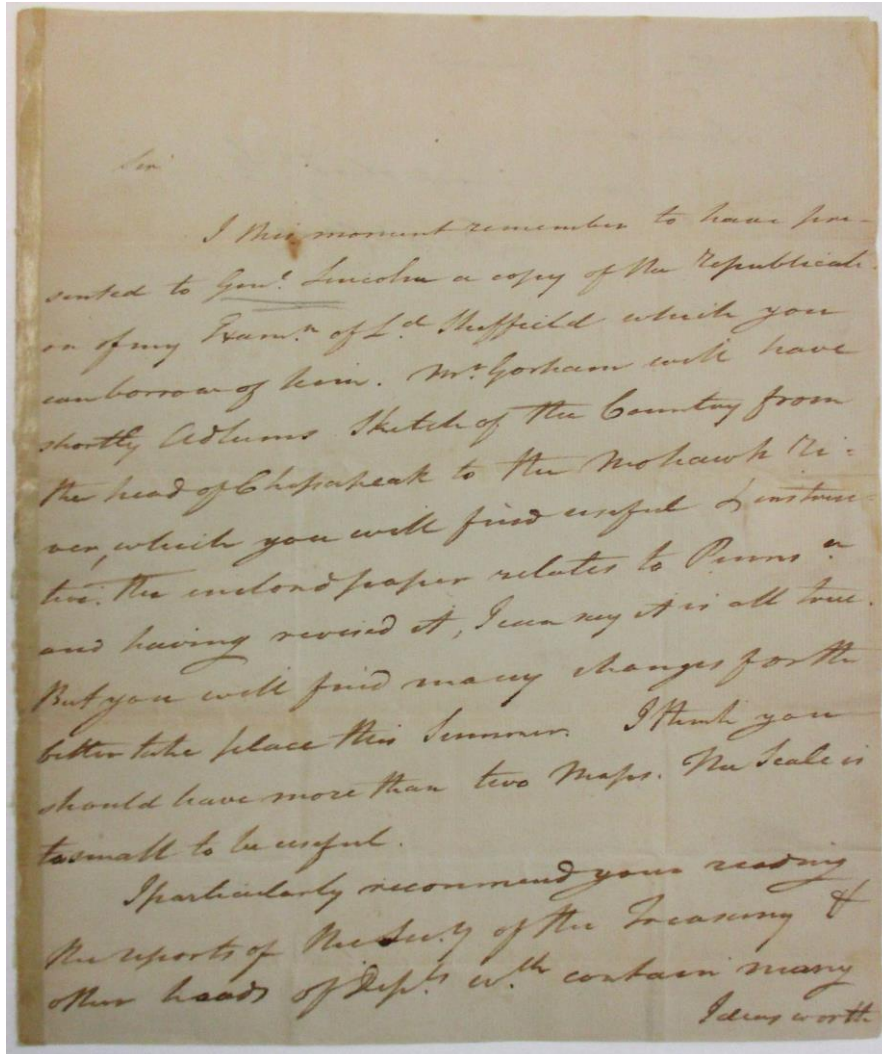 Sir
I this moment remember to have pre-
sented to Genl. Lincoln a copy of the republicati-
on of my Examn. of Ld. Sheffield which you
can borrow of him. Mr. Gorham will have
shortly Adlums Sketch of the Country from
the head of Chesapeak to the Mohawk Ri-
ver, which you will find useful & instruc-
tive. The enclosed paper relates to Pennsa.
and having revised it, I can say it is all true.
But you will find many changes for the
better take place this Summer. I think you
should have more than two Maps. The Scale is
to small to be useful.
I particularly recommend your reading
the reports of the Secy. of the Treasury &
other heads of Depts. wch. contain many
Ideas worth